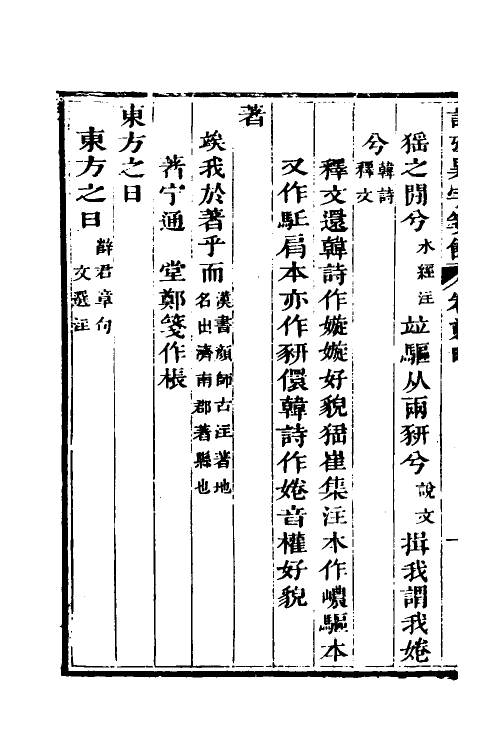 猺之閒兮水經注竝驅从兩豜兮說文揖我謂我婘
兮韓詩釋文
釋文還韓詩作嫙嫙好貌猺崔集注本作嶩驅本
又作駈肩本亦作豜儇韓詩作婘音權好貌
著
竢我於著乎而漢書顏師古注著地名出濟南郡著縣也
著宁通　堂鄭箋作棖
東方之日
東方之日薛君章句文選注